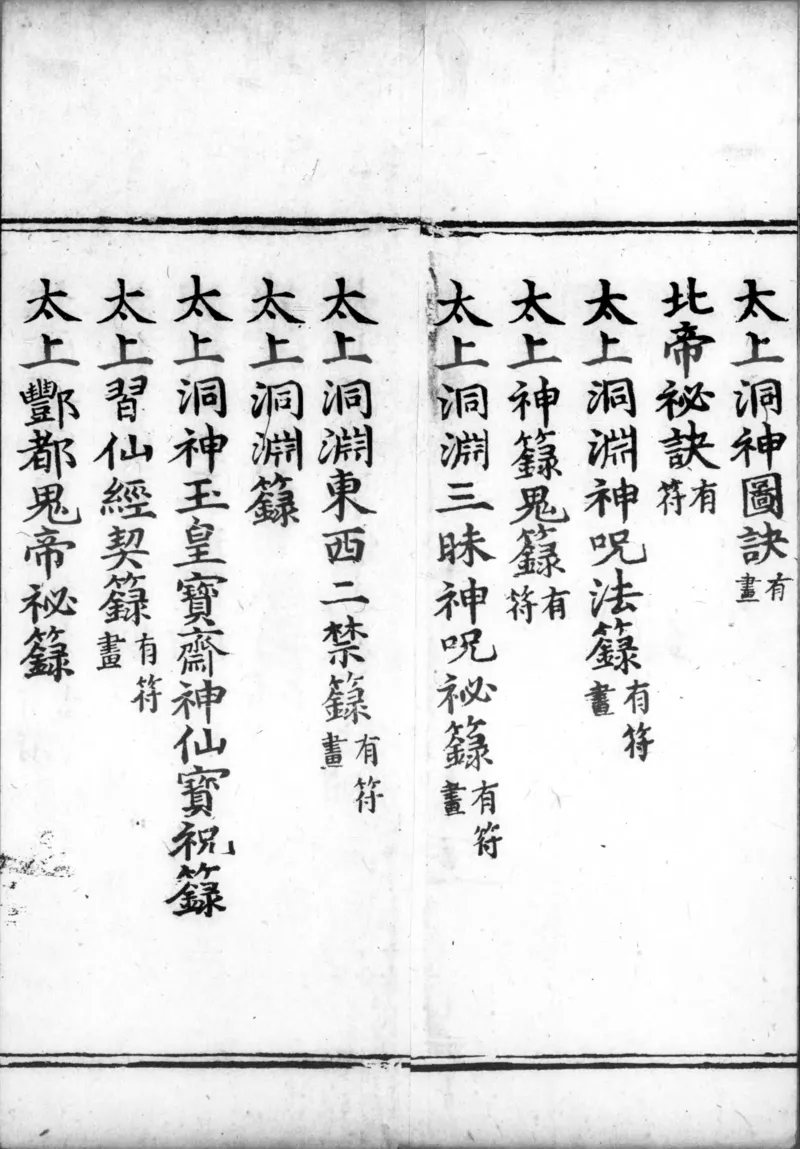 太上洞神圖訣有畫
北帝祕訣有符
太上洞淵神呪法籙有符畫
太上神籙鬼籙有符
太上洞淵三昧神呪祕籙有符畫
太上洞淵東西二禁籙有符畫
太上洞淵籙
太上洞神玉皇寶齋神仙寶祝籙
太上習仙經契籙有符畫
太上酆都鬼帝祕籙